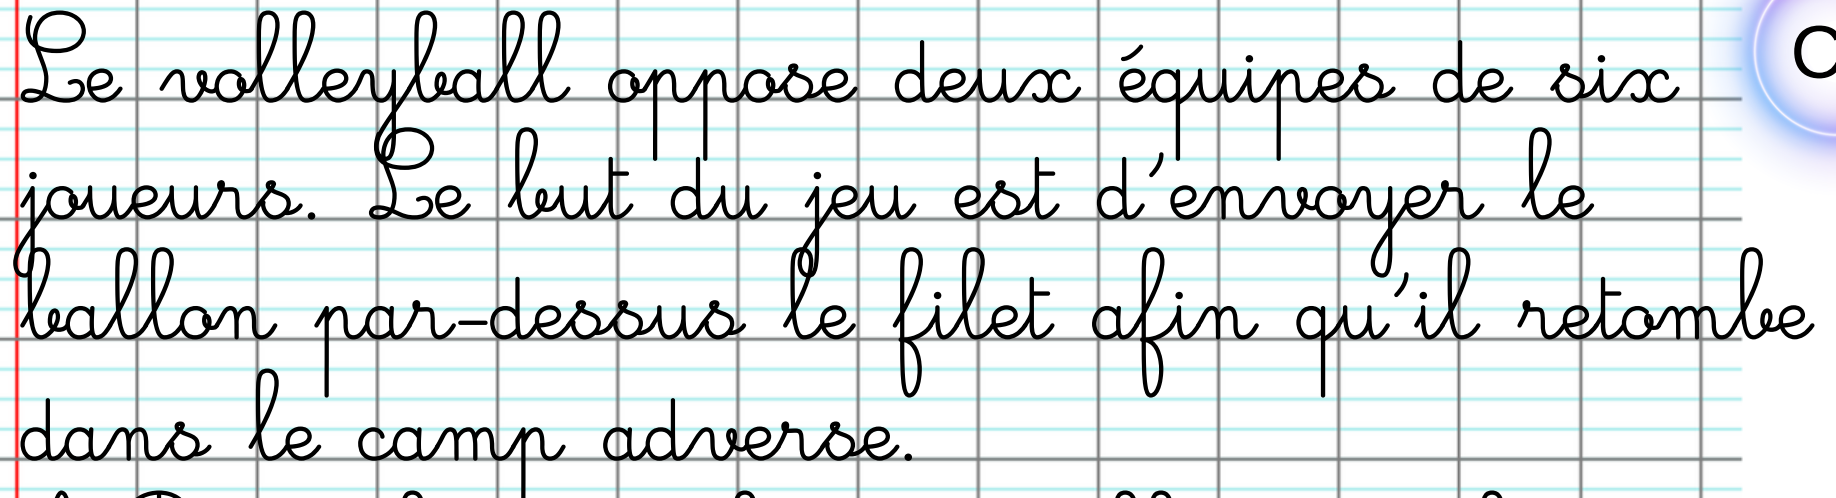 Le volleyball oppose deux équipes de six
joueurs. Le but du jeu est d'envoyer le
ballon par-dessus le filet afin qu'il retombe
dans le camp adverse.